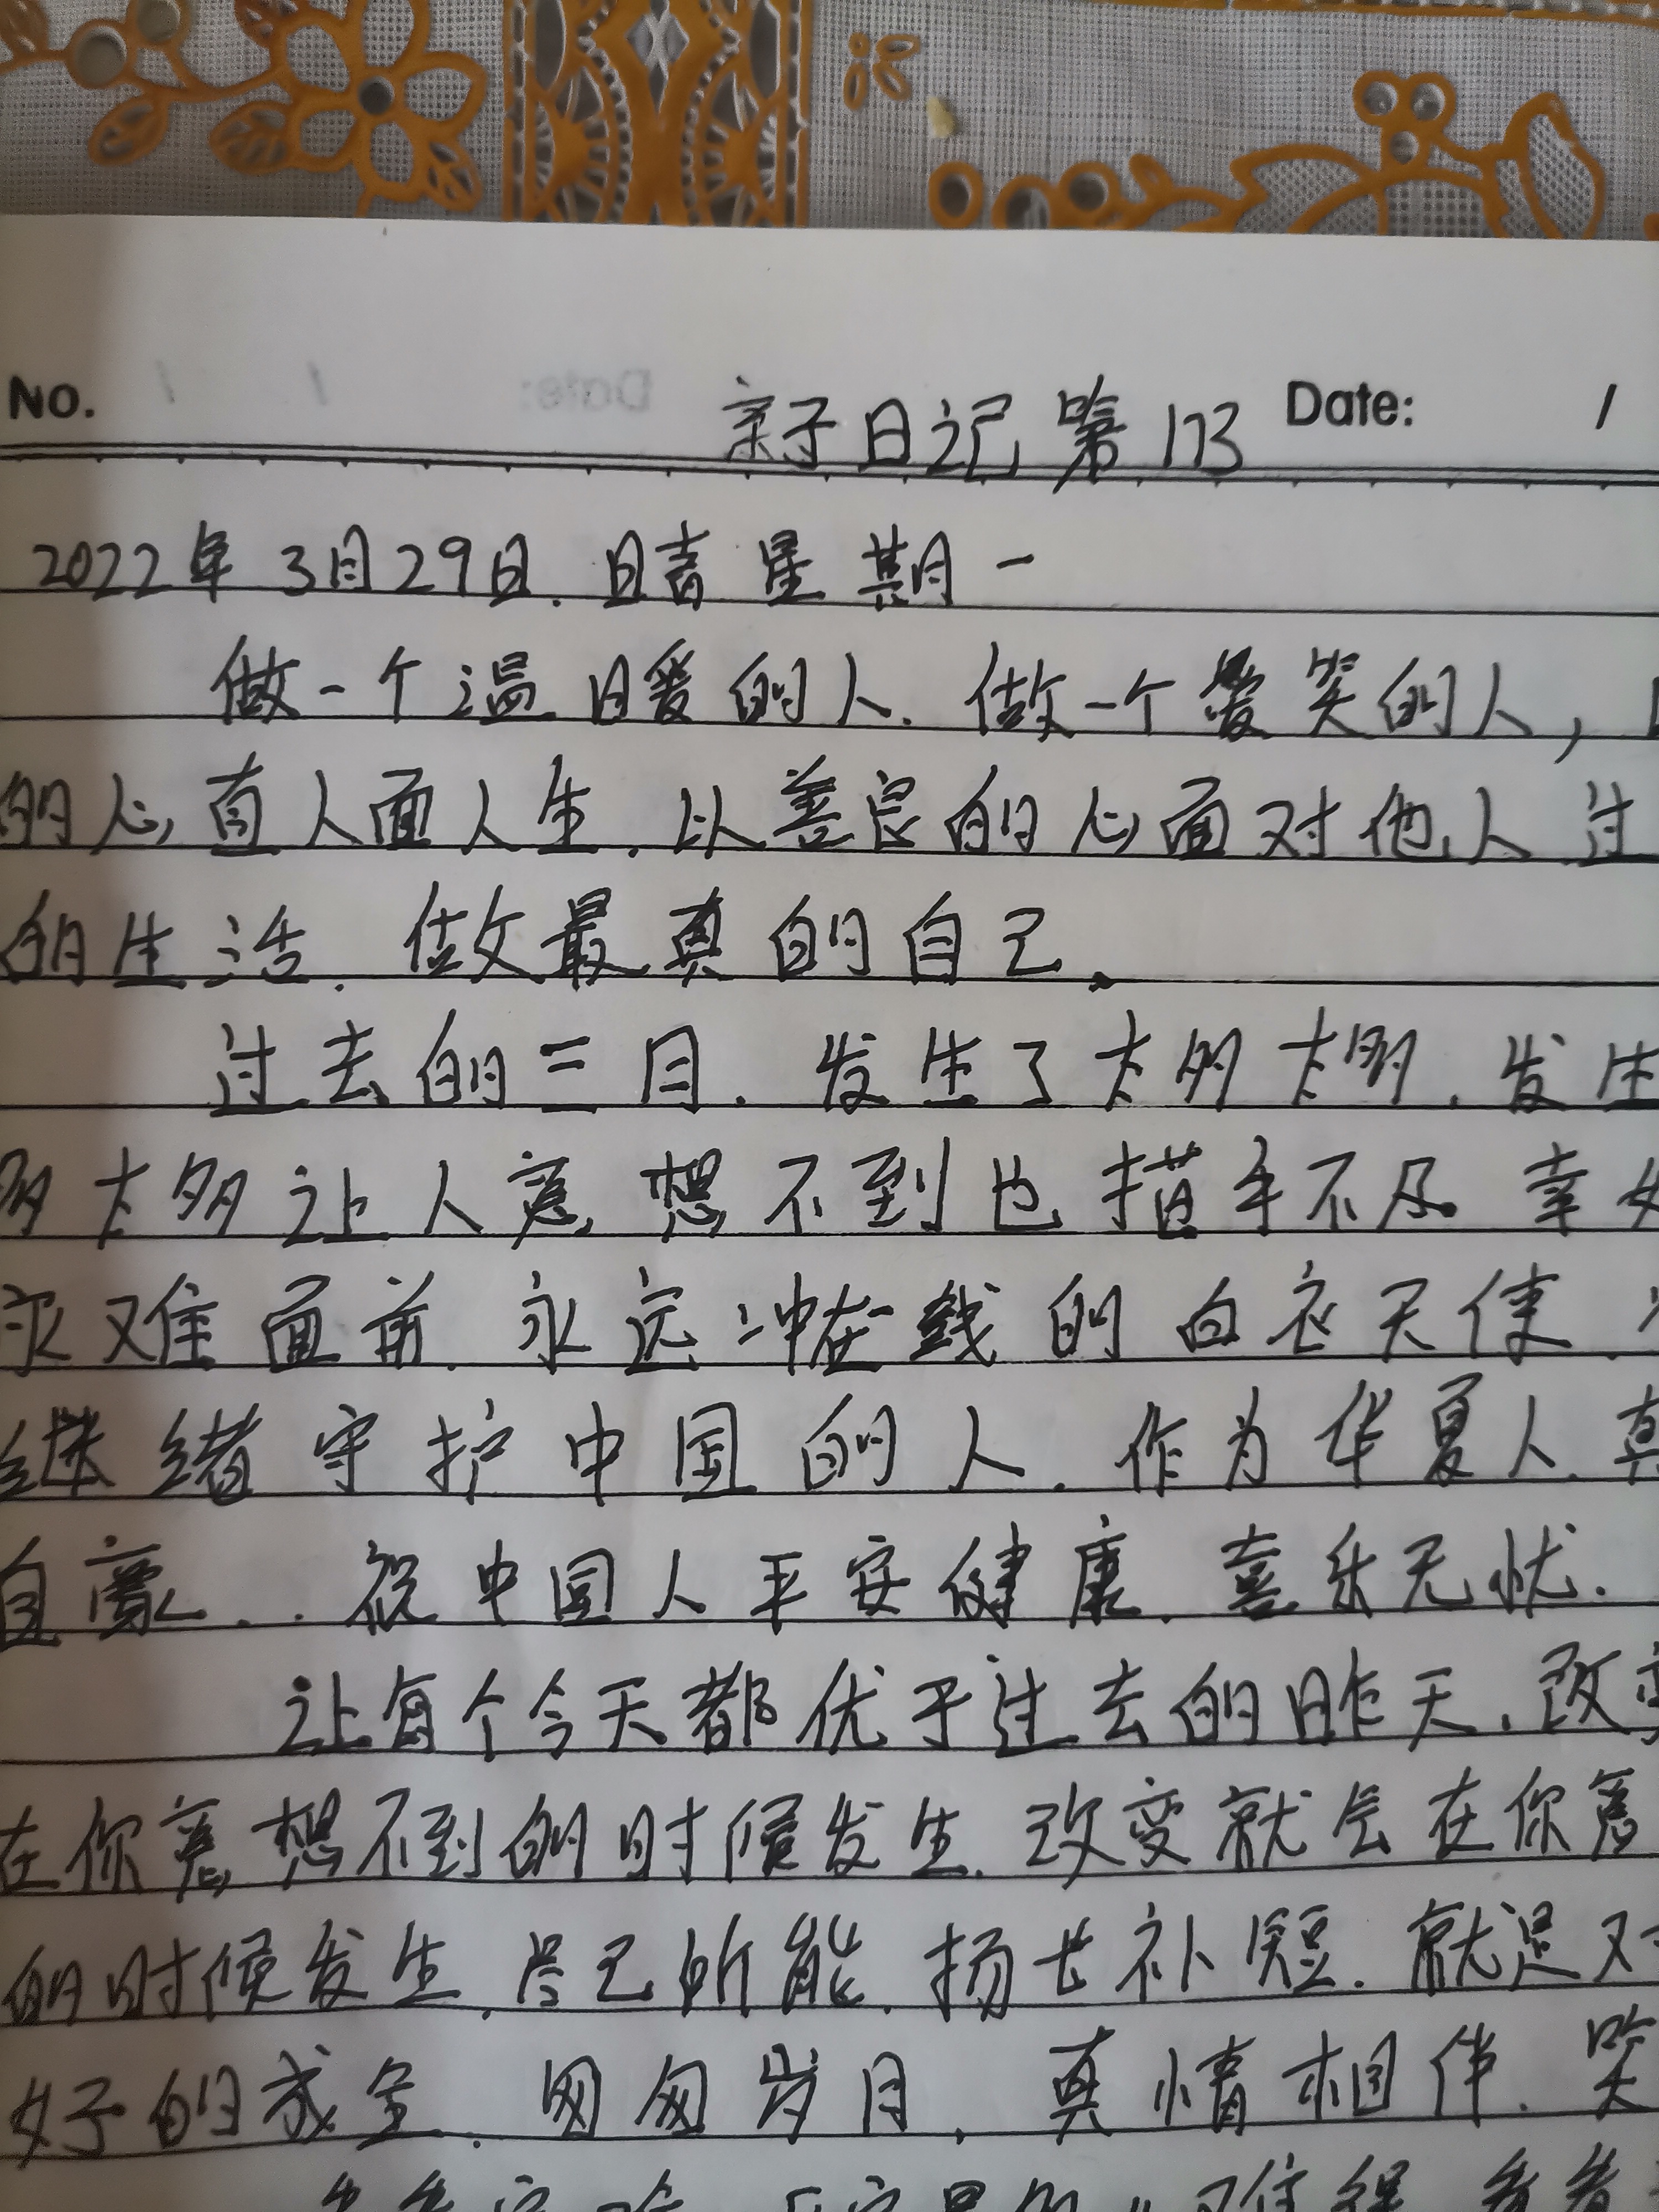 No. 亲子日记 第173 Date: /
2022年3月29日.晴 星期一
做一个温暖的人.做一个爱笑的人,
的心直人面人生.以善良的心面对他人 过
的生活.做最真的自己.
过去的三月.发生了太多太多.发生
多太多让人意想不到也措手不及 幸好
灾难面前.永远冲在一线的白衣天使.
继绪守护中国的人.作为华夏人.真
自豪..祝中国人平安健康.喜乐无忧.
让每个今天都优于过去的昨天.改变
在你意想不到的时候发生.改变就会在你意
的时候发生.尽己所能.扬长补短.就是对
好的成全.匆匆岁月,真情相伴.笑